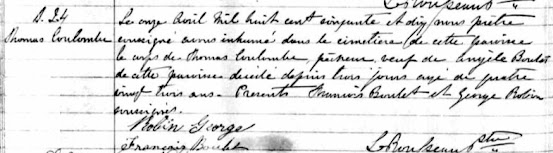 L. Rousseau ptre
S. 24
Thomas Coulombe
Le onze Avril mil huit cent soixante et dix nous prêtre
soussigné avons inhumé dans le cimetière de cette paroisse
le corps de Thomas Coulombe, pêcheur, veuf de Angèle Boulet
de cette paroisse décédé depuis trois jours agé de quatre
vingt trois ans. Presents François Boulet et George Robin
soussignés.
Robin George
François Boulet
L. Rousseau Ptre